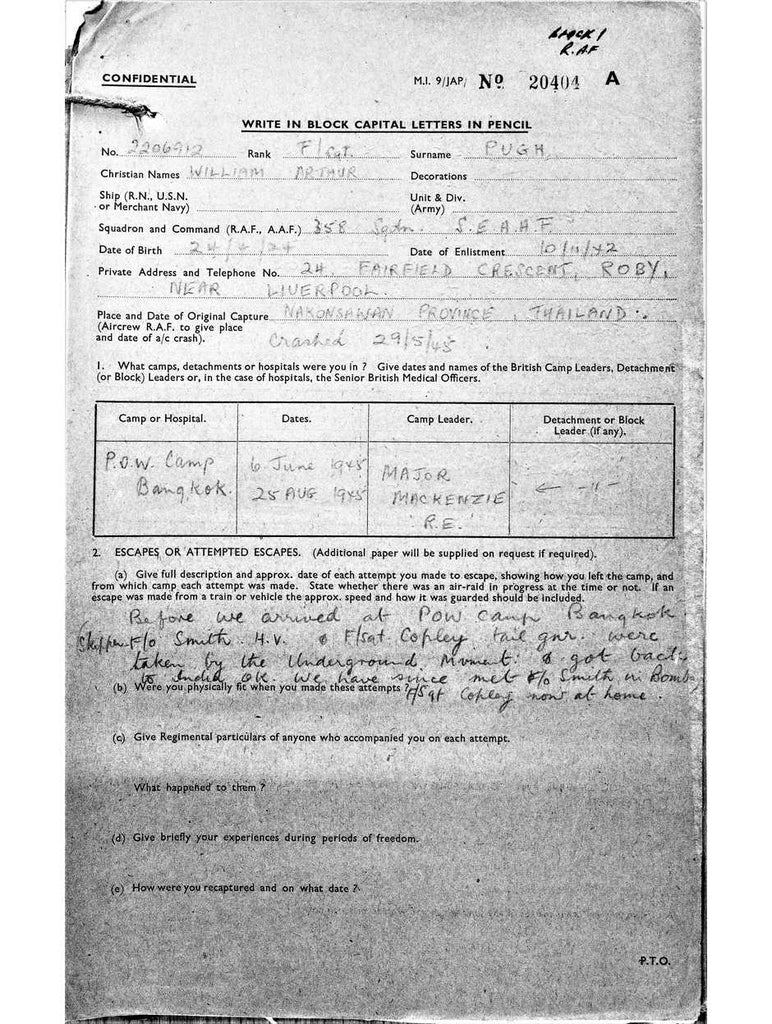 BLOCK 1
R.A.F
CONFIDENTIAL
M.I. 9/JAP/ No 20404 A
WRITE IN BLOCK CAPITAL LETTERS IN PENCIL
No. 2206912 Rank F/Sgt. Surname PUGH
Christian Names WILLIAM ARTHUR Decorations
Ship (R.N., U.S.N. or Merchant Navy) Unit & Div. (Army)
Squadron and Command (R.A.F., A.A.F.) 358 Sqdn. S.E.A.A.F.
Date of Birth 24/4/24 Date of Enlistment 10/11/42
Private Address and Telephone No. 24, FAIRFIELD CRESCENT, ROBY,
NEAR LIVERPOOL.
Place and Date of Original Capture NAKONSAWAN PROVINCE, THAILAND.
(Aircrew R.A.F. to give place
and date of a/c crash). Crashed 29/5/45.
1. What camps, detachments or hospitals were you in ? Give dates and names of the British Camp Leaders, Detachment
(or Block) Leaders or, in the case of hospitals, the Senior British Medical Officers.
Camp or Hospital. Dates. Camp Leader. Detachment or Block Leader (if any).
P.O.W. Camp 6 June 1945 MAJOR
Bangkok. 25 AUG 1945 MACKENZIE — " —
R.E.
2. ESCAPES OR ATTEMPTED ESCAPES. (Additional paper will be supplied on request if required).
(a) Give full description and approx. date of each attempt you made to escape, showing how you left the camp, and
from which camp each attempt was made. State whether there was an air-raid in progress at the time or not. If an
escape was made from a train or vehicle the approx. speed and how it was guarded should be included.
Before we arrived at POW camp Bangkok
Skipper F/o Smith. H.V. & F/Sgt Copley tail gnr. were
taken by the Underground Movment. & got back
to India OK. We have since met F/o Smith in Bomb
(b) Were you physically fit when you made these attempts ? F/Sgt Copley now at home.
(c) Give Regimental particulars of anyone who accompanied you on each attempt.
What happened to them ?
(d) Give briefly your experiences during periods of freedom.
(e) How were you recaptured and on what date ?
P.T.O.